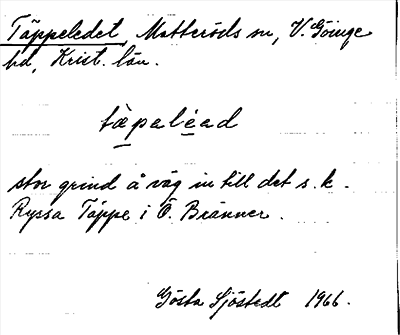 Täppeledet, Matteröds sn, V. Göinge
hd, Krist. län.
tæpaléad
stor grind å väg in till det s. k.
Ryssa Täppe i Ö. Bränner.
Gösta Sjöstedt 1966.